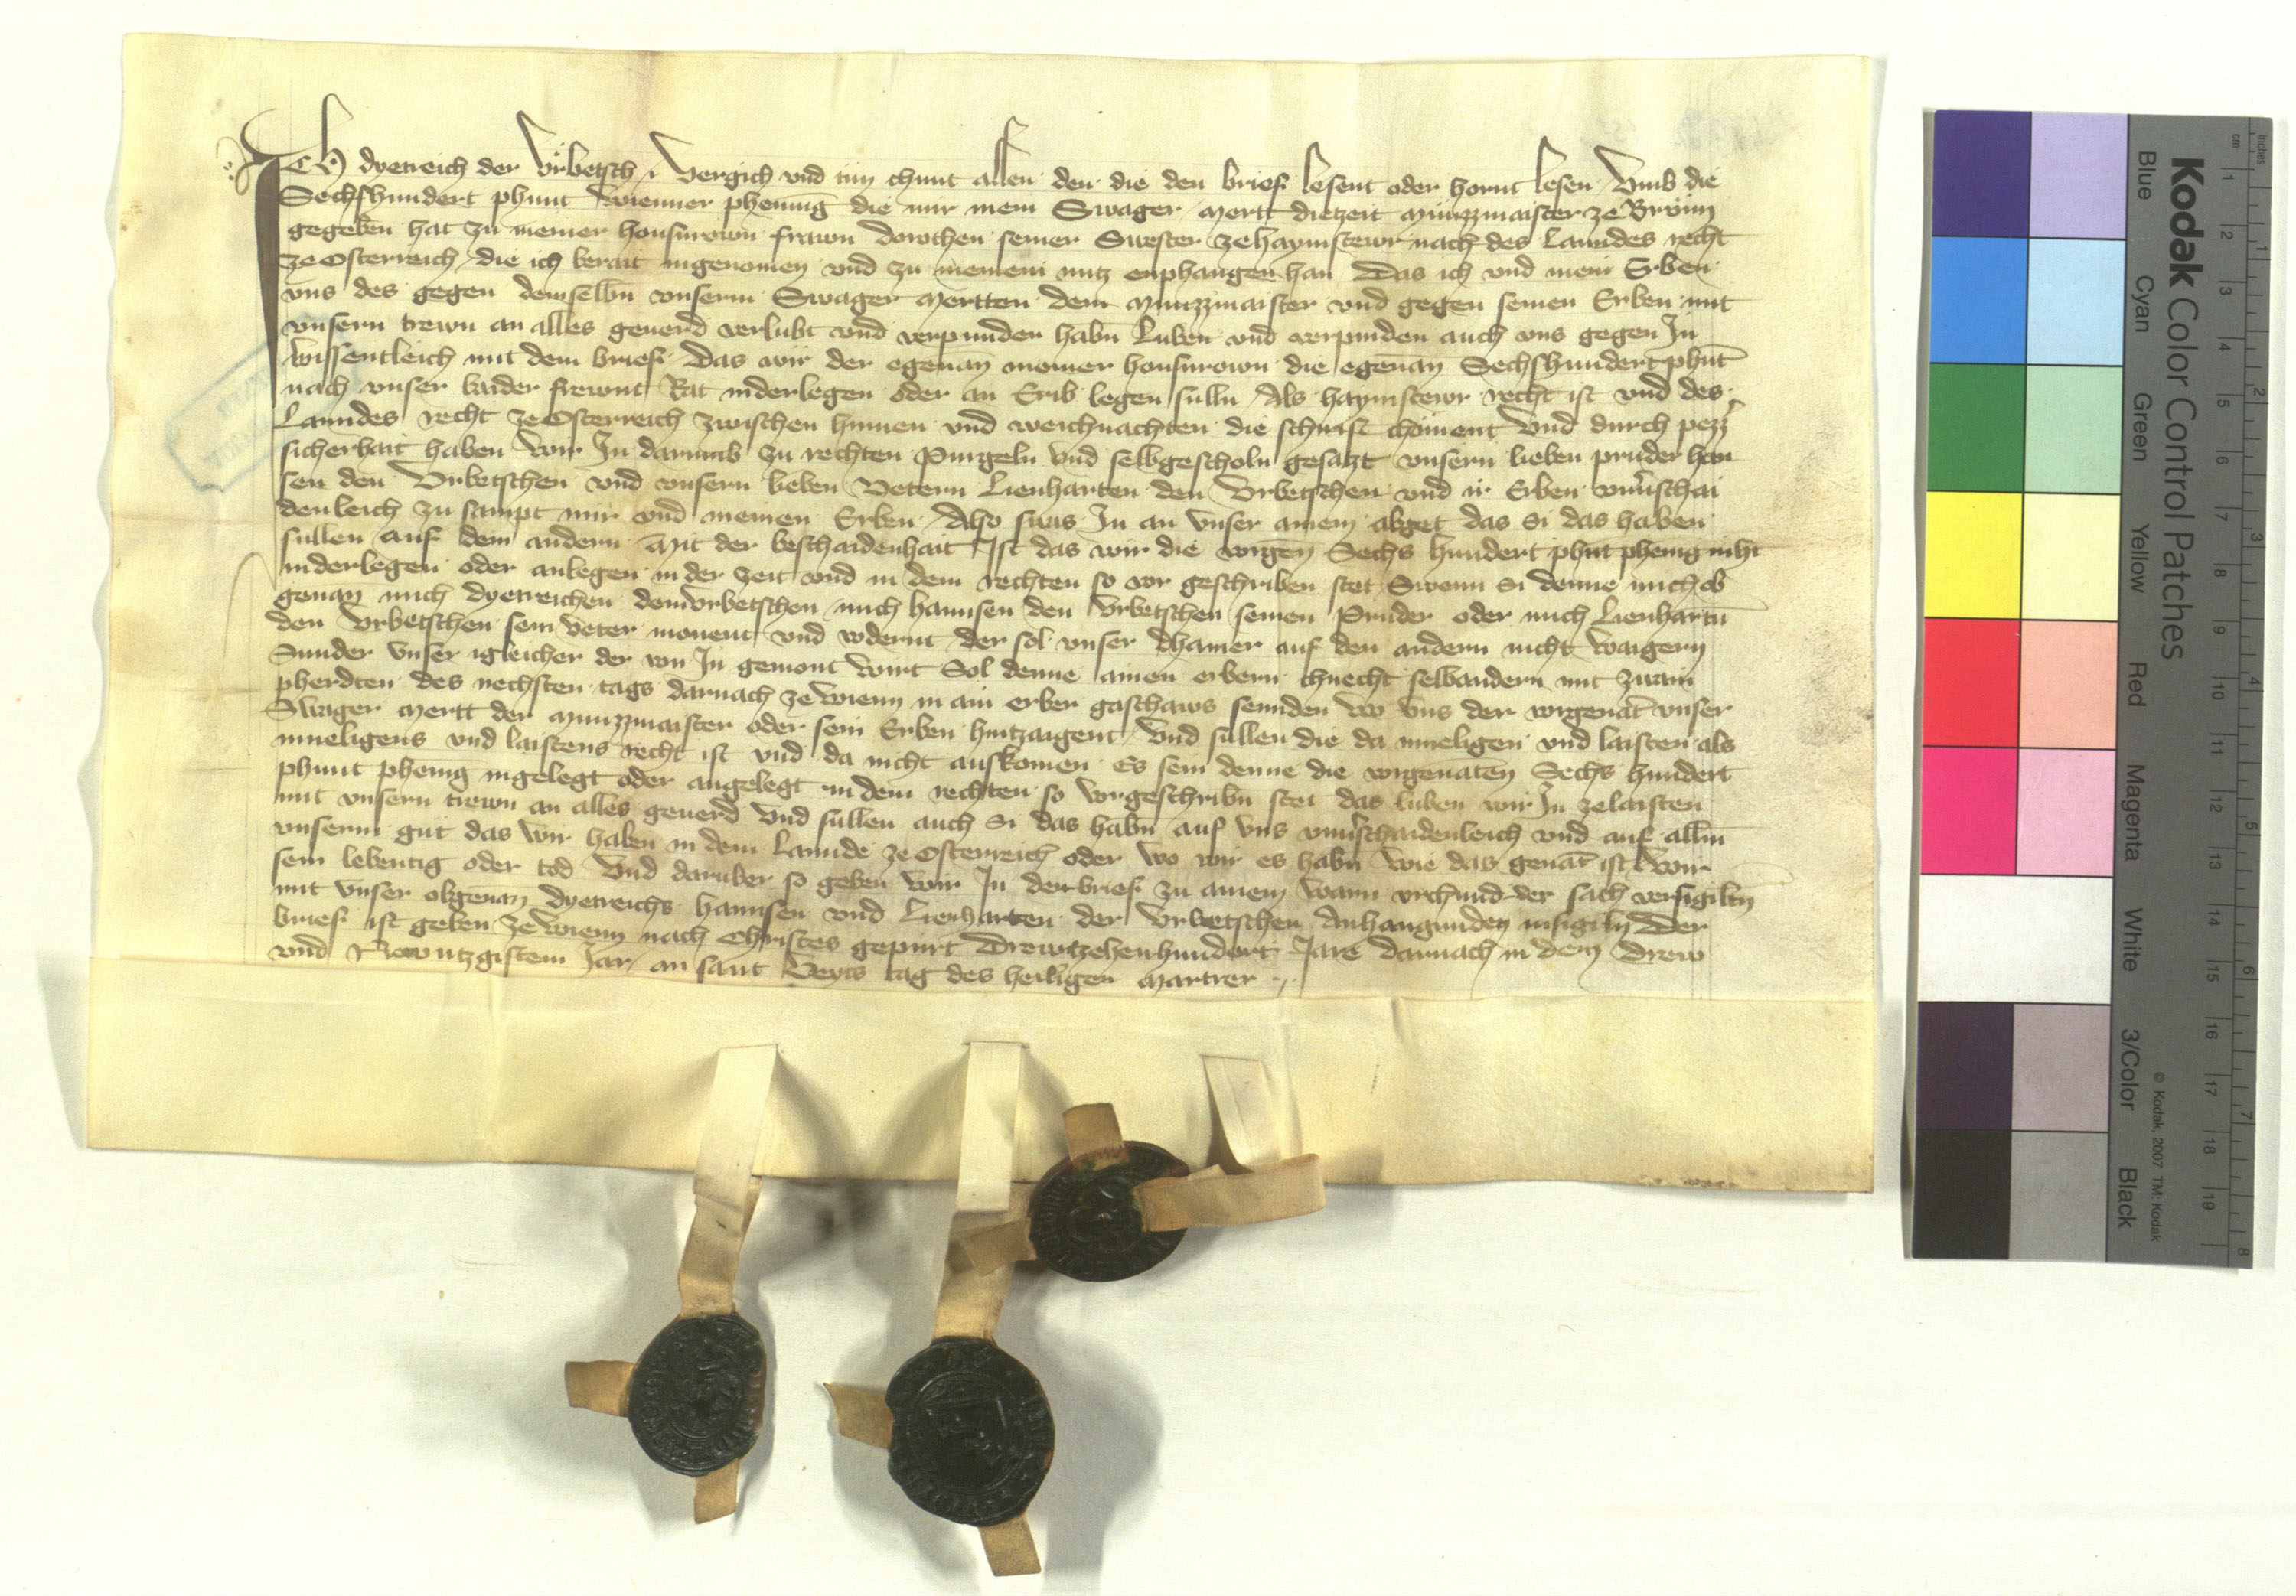 ICH dyetreich der Vrbetsch, Vergich vnd tün chunt allen den die den brief lesent oder hornt lesen Vmb die
Sechshundert phunt Wienner phening die mir mein Swager Mertt dietzeit Münzzmaister ze Brünn
gegeben hat zu meiner housurown frawn dorothen seiner Swester ze haymstewr nach des Lanndes recht
ze Osterreich, die ich berait ingenomen vnd zu meinem nutz enphangen han Das ich vnd mein Erben
vns des gegen demselbn vnserm Swager Mertten dem Munzzmaister vnd gegen seinen Erben mit
vnsern trewn an alles geuerd verlubt vnd verpunden habn Luben vnd verpinden auch vns gegen In
wissentleich mit dem brief Das wir der egenan meiner housurown die egenan Sechshundert phut
nach vnser baider frewnt Rat niderlegen oder an Erib legen sulln Als haymstewr recht ist vnd des
Lanndes recht ze Osterreich zwischen hinnen vnd weichnachten die schirist chöment Vnd durch pezzer
sicherhait haben wir In darumb zu rechten Purgeln vnd selbgescholn gesatzt vnsern lieben pruder han
sen den Vrbetschen vnd vnsern lieben Vetern Lienharten den Vrbetschen vnd ir Erben vnuerschai
denleich zu sampt mir vnd meinen Erben Also swas In an vnser ainem abget das si das haben
sullen auf dem andern Mit der beschaidenhait Ist das wir die vorgen Sechs hundert phut phenig niht
niderlegen oder anlegen in der zeit vnd in dem rechten so vor geschriben stet Swenn si denne mich ob
genan mich dyetreichen den Vrbetschen mich hannsen den Vrbetschen seinen Pruder oder mich Lienhartn
den Vrbetschen sein Veter monent vnd vodernt der sol vnser dhainer auf den andern nicht waigern
Sunder vnser igleicher der von In gemont wirt Sol denne ainen erbern chnecht selbandern mit zwain
pherdten des nechsten tags darnach ze Wienn in ain erber gasthaws sennden wo vns der vorgenant vnser
Swager Mertt der Munzzmaister oder sein Erben hintzaigent Vnd sullen die da inneligen vnd laisten als
inneligens vnd laistens recht ist vnd da nicht auskomen Es sein denne die vorgenaten Sechs hundert
phunt phenig ingelegt oder angelegt in dem rechten so vorgeschribn stet das luben wir In ze laisten
mit vnsern trewn an alles geuerd Vnd sullen auch si das habn auf vns vnuerschaidenleich vnd auf allm
vnserm gut das wir haben in dem Lannde ze Osterreich oder wo wir es habn wie das genant ist wir
sein lebentig oder tod Vnd daruber so geben wir In den brief zu ainem warn vrchund der sach versigiltn
mit vnser obgenan dyetreichs hannsen vnd Lienharten der Vrbetschen anhangunden insigiln Der
brief ist geben ze Wienn nach Christes gepurt Drewtzehenhundert Jare darnach in dem Drew
vnd Newntzgistem Jar an sant Veyts tag des heiligen Martrer
Kodak Color Control Patches
Blue Cyan Green Yellow Red Magenta White 3/Color Black
© Kodak, 2007 TM: Kodak
inches 1 2 3 4 5 6 7 8
cm 1 2 3 4 5 6 7 8 9 10 11 12 13 14 15 16 17 18 19